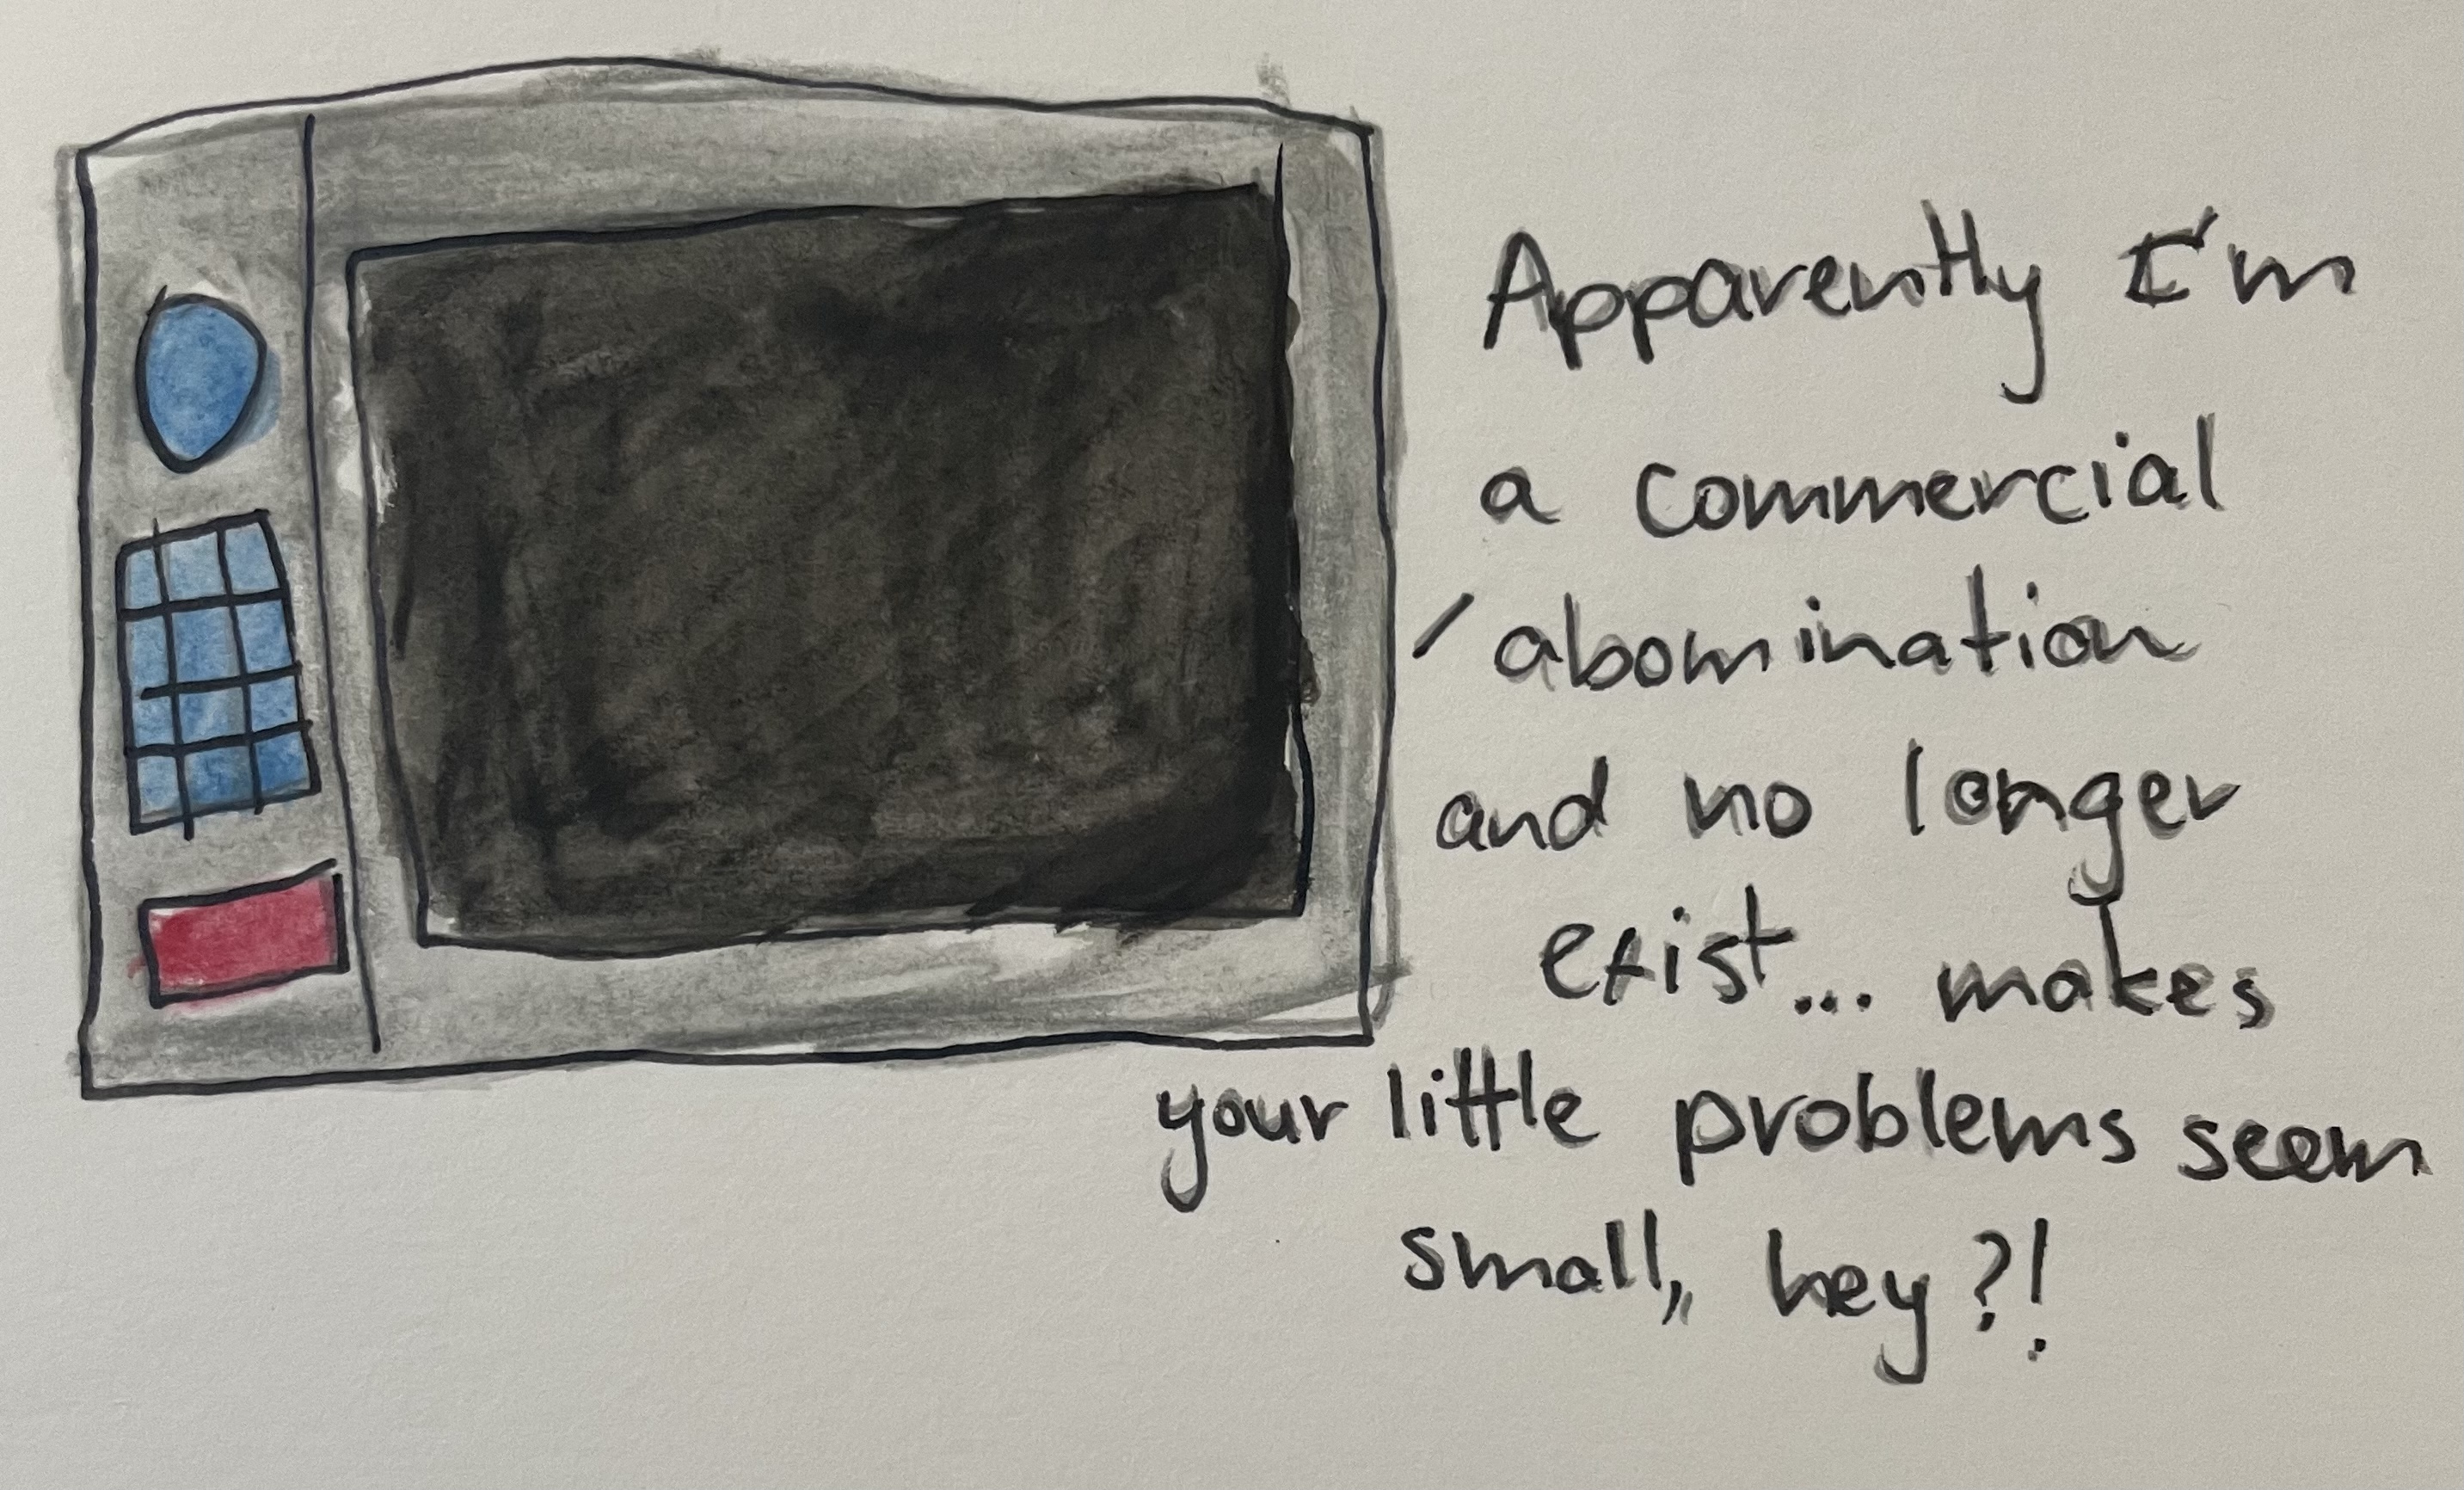 Apparently I'm
a commercial
abomination
and no longer
exist... makes
your little problems seem
small, hey?!